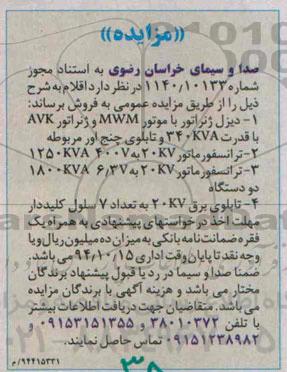 «مزایده»
صدا و سیمای خراسان رضوی به استناد مجوز
شماره ۱۱۴۰/۱۰۱۳۳ در نظر دارد اقلام به شرح
ذیل را از طریق مزایده عمومی به فروش برساند:
۱- دیزل ژنراتور با موتور MWM و ژنراتور AVK
با قدرت ۳۴۰KVA و تابلوی چنج اور مربوطه
۲- ترانسفورماتور ۲۰KV به ۴۰۰V ۱۲۵۰KVA
۳- ترانسفورماتور ۲۰KV به ۶/۳V ۱۸۰۰KVA
دو دستگاه
۴- تابلوی برق ۲۰KV به تعداد ۷ سلول کلیددار
مهلت اخذ درخواستهای پیشنهادی به همراه یک
فقره ضمانت نامه بانکی به میزان ده میلیون ریال و یا
وجه نقد تا پایان وقت اداری ۹۴/۱۰/۱۵ می باشد.
ضمنا صدا و سیما در رد یا قبول پیشنهاد برندگان
مختار می باشد و هزینه آگهی با برندگان مزایده
می باشد. متقاضیان جهت دریافت اطلاعات بیشتر
با تلفن ۳۸۰۱۰۳۷۲ و ۰۹۱۵۳۱۵۱۳۵۵ و
۰۹۱۵۱۲۳۸۹۸۲ تماس حاصل نمایند.
۹۴۴۱۵۳۳۱/م
۳۸